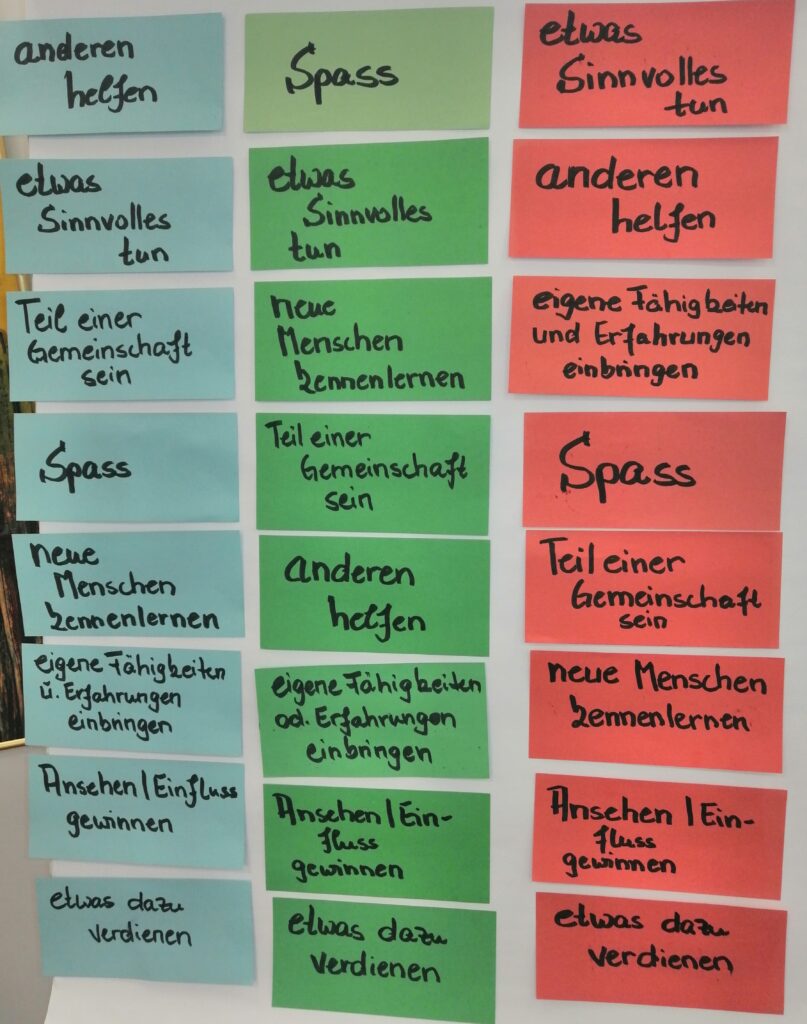 anderen
helfen
etwas
Sinnvolles
tun
Teil einer
Gemeinschaft
sein
Spass
neue
Menschen
kennenlernen
eigene Fähigkeiten
u. Erfahrungen
einbringen
Ansehen | Einfluss
gewinnen
etwas dazu
verdienen
Spass
etwas
Sinnvolles
tun
neue
Menschen
kennenlernen
Teil einer
Gemeinschaft
sein
anderen
helfen
eigene Fähigkeiten
od. Erfahrungen
einbringen
Ansehen | Ein-
fluss
gewinnen
etwas dazu
verdienen
etwas
Sinnvolles
tun
anderen
helfen
eigene Fähigkeiten
und Erfahrungen
einbringen
Spass
Teil einer
Gemeinschaft
sein
neue Menschen
kennenlernen
Ansehen | Ein-
fluss
gewinnen
etwas dazu
verdienen